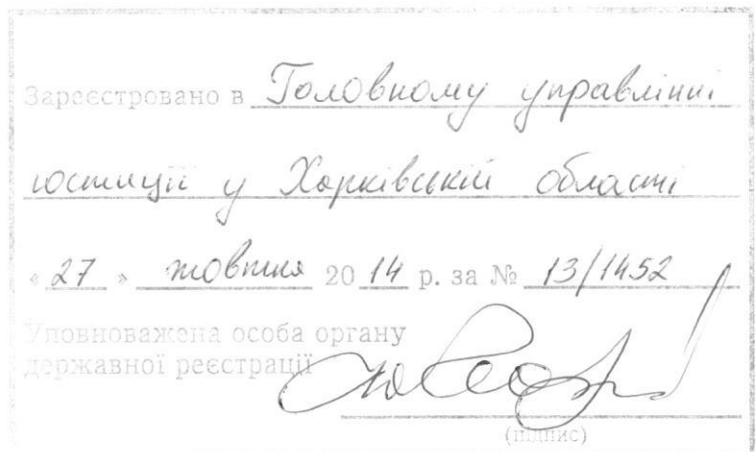 Зареєстровано в Головному управлінні
юстиції у Харківській області
« 27 » жовтня 20 14 р. за № 13/1452
Уповноважена особа органу
державної реєстрації
(підпис)